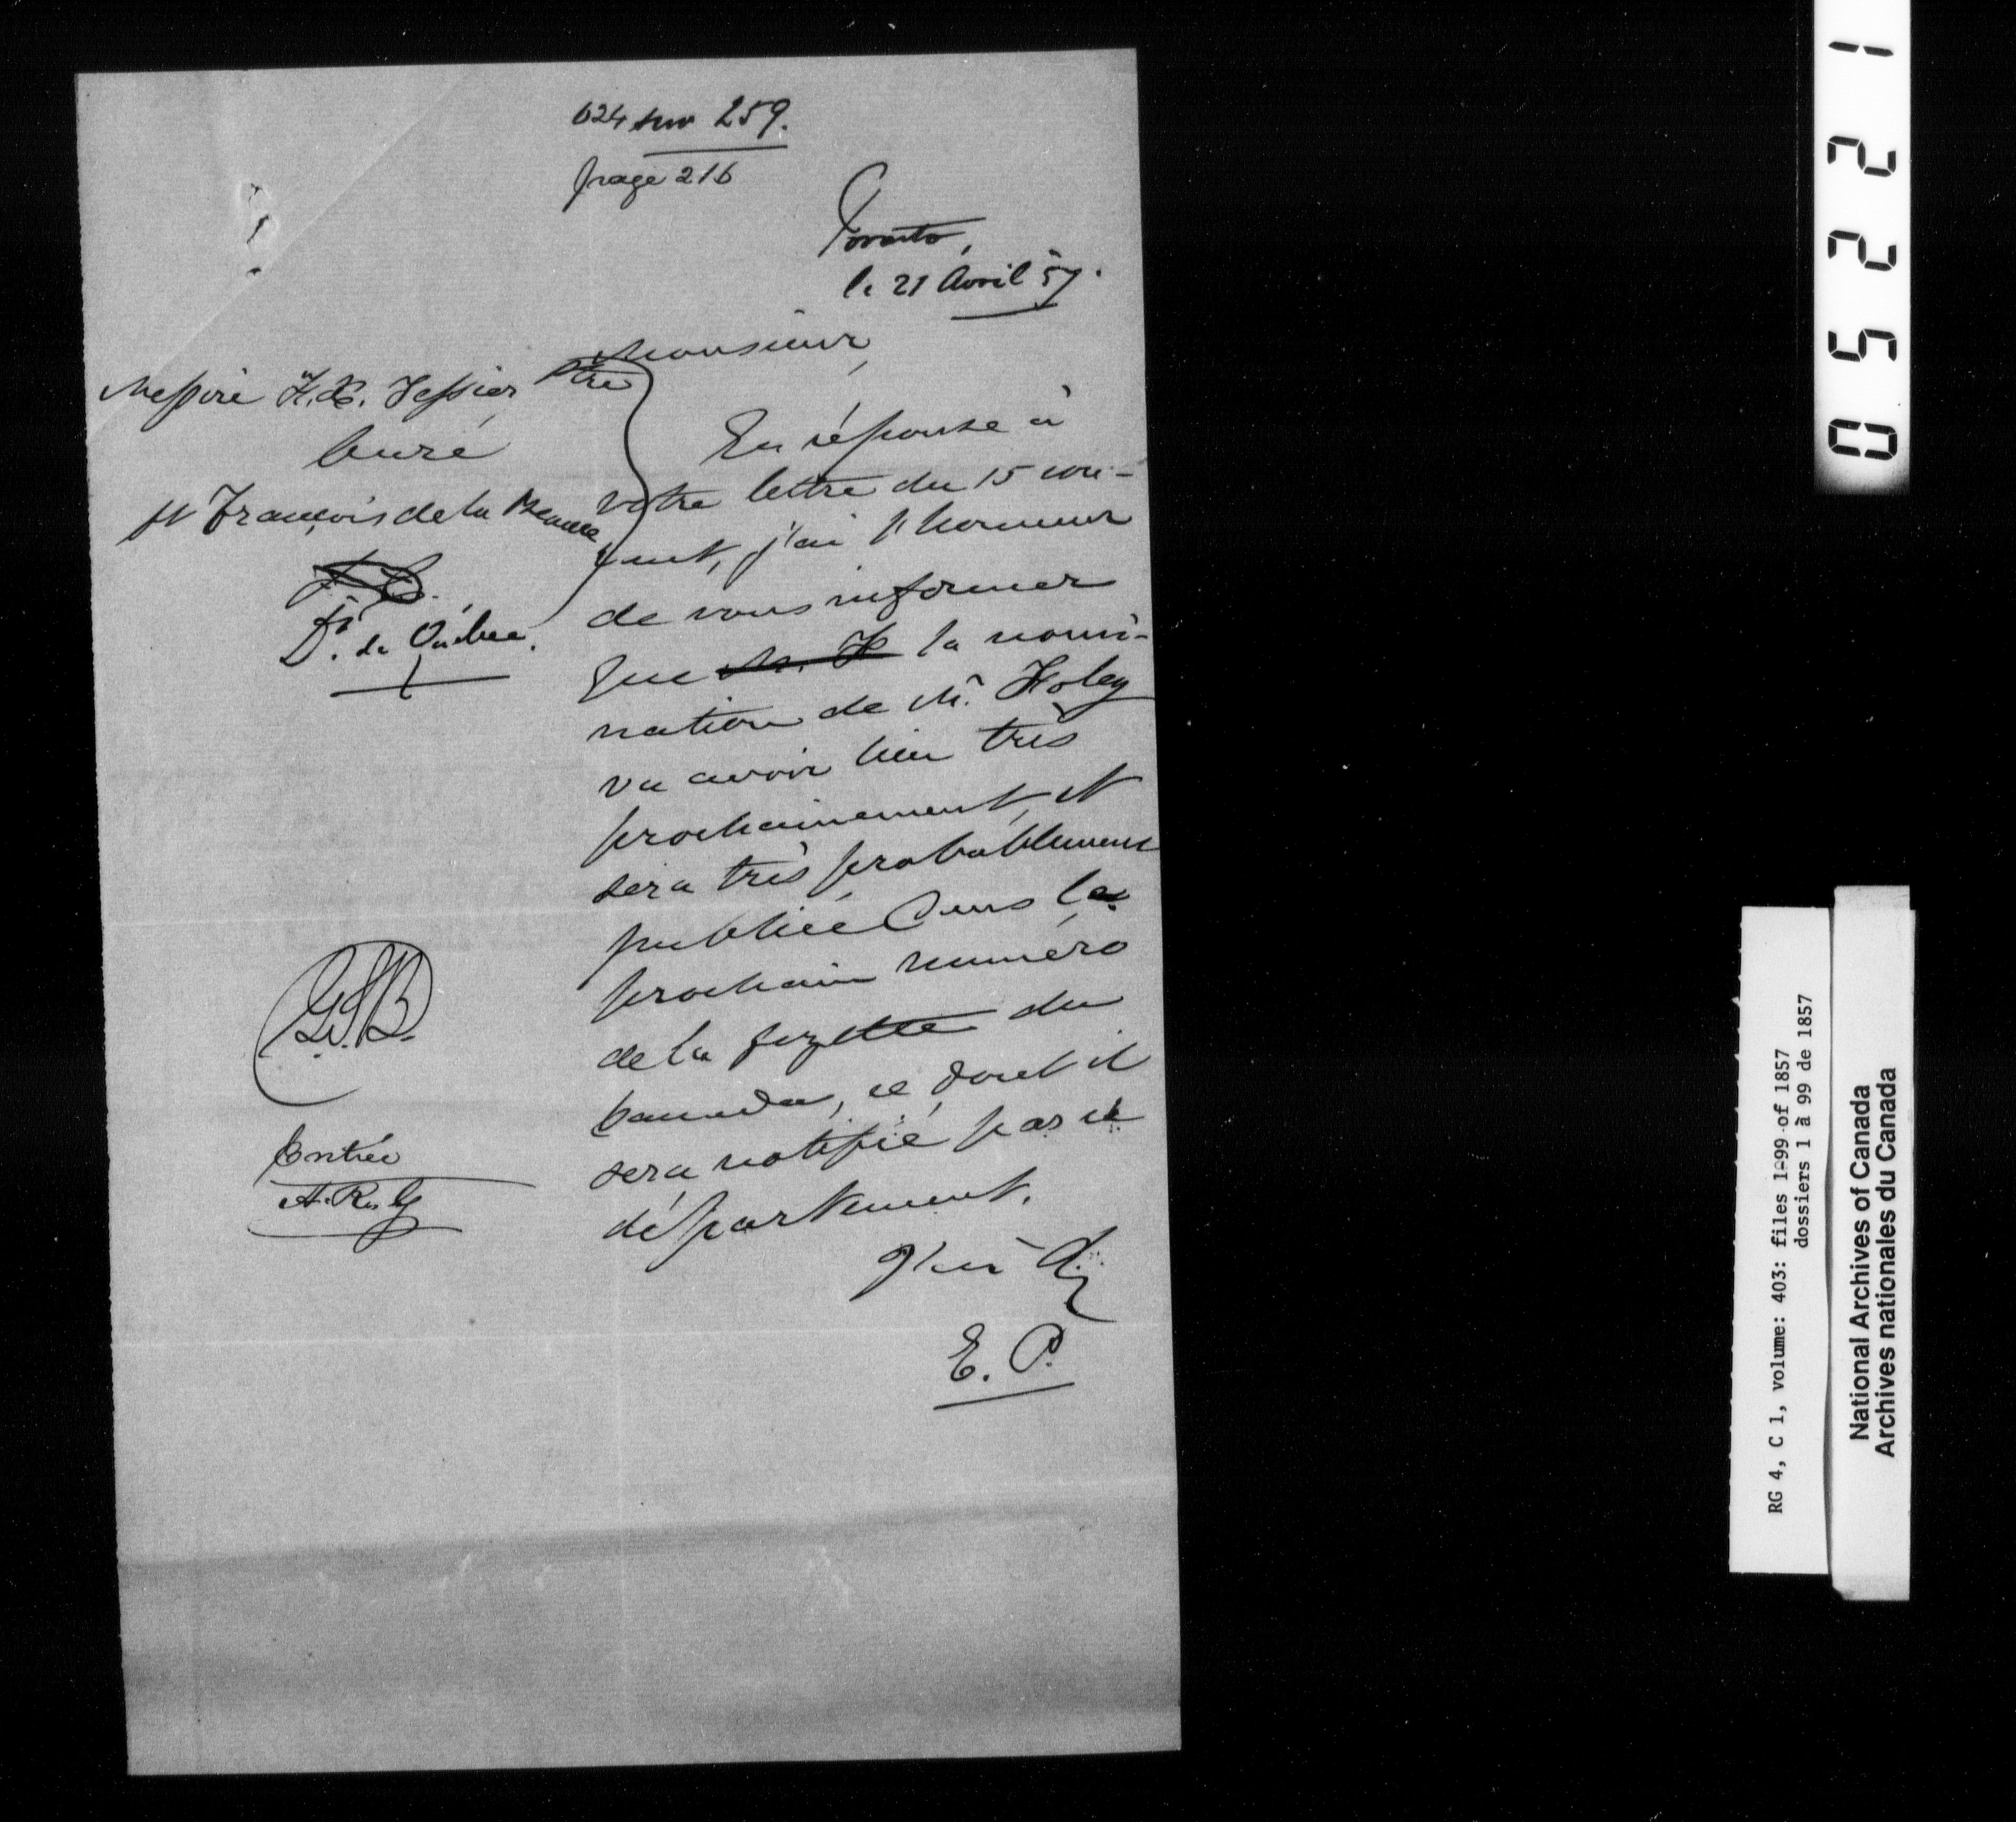 624 sur 259.
page 216
Toronto,
le 21 Avril 57.
Monsieur,
Messire F. X. Tessier Ptre
Curé
St François de la Beauce
Dt. de Québec.
En réponse à
votre lettre du 15 cou-
rant, j'ai l'honneur
de vous informer
que la nomi-
nation de M.Holey
va avoir lieu très
prochainement, et
sera très probablement
publiée dans le
prochain numéro
de la gazette du
Canada, ce dont il
sera notifié par ce
département.
J'ai &c
E. P.
G.S.B.
Entrée
05221
RG 4, C 1, volume: 403: files 1-99 of 1857
dossiers 1 à 99 de 1857
National Archives of Canada
Archives nationales du Canada